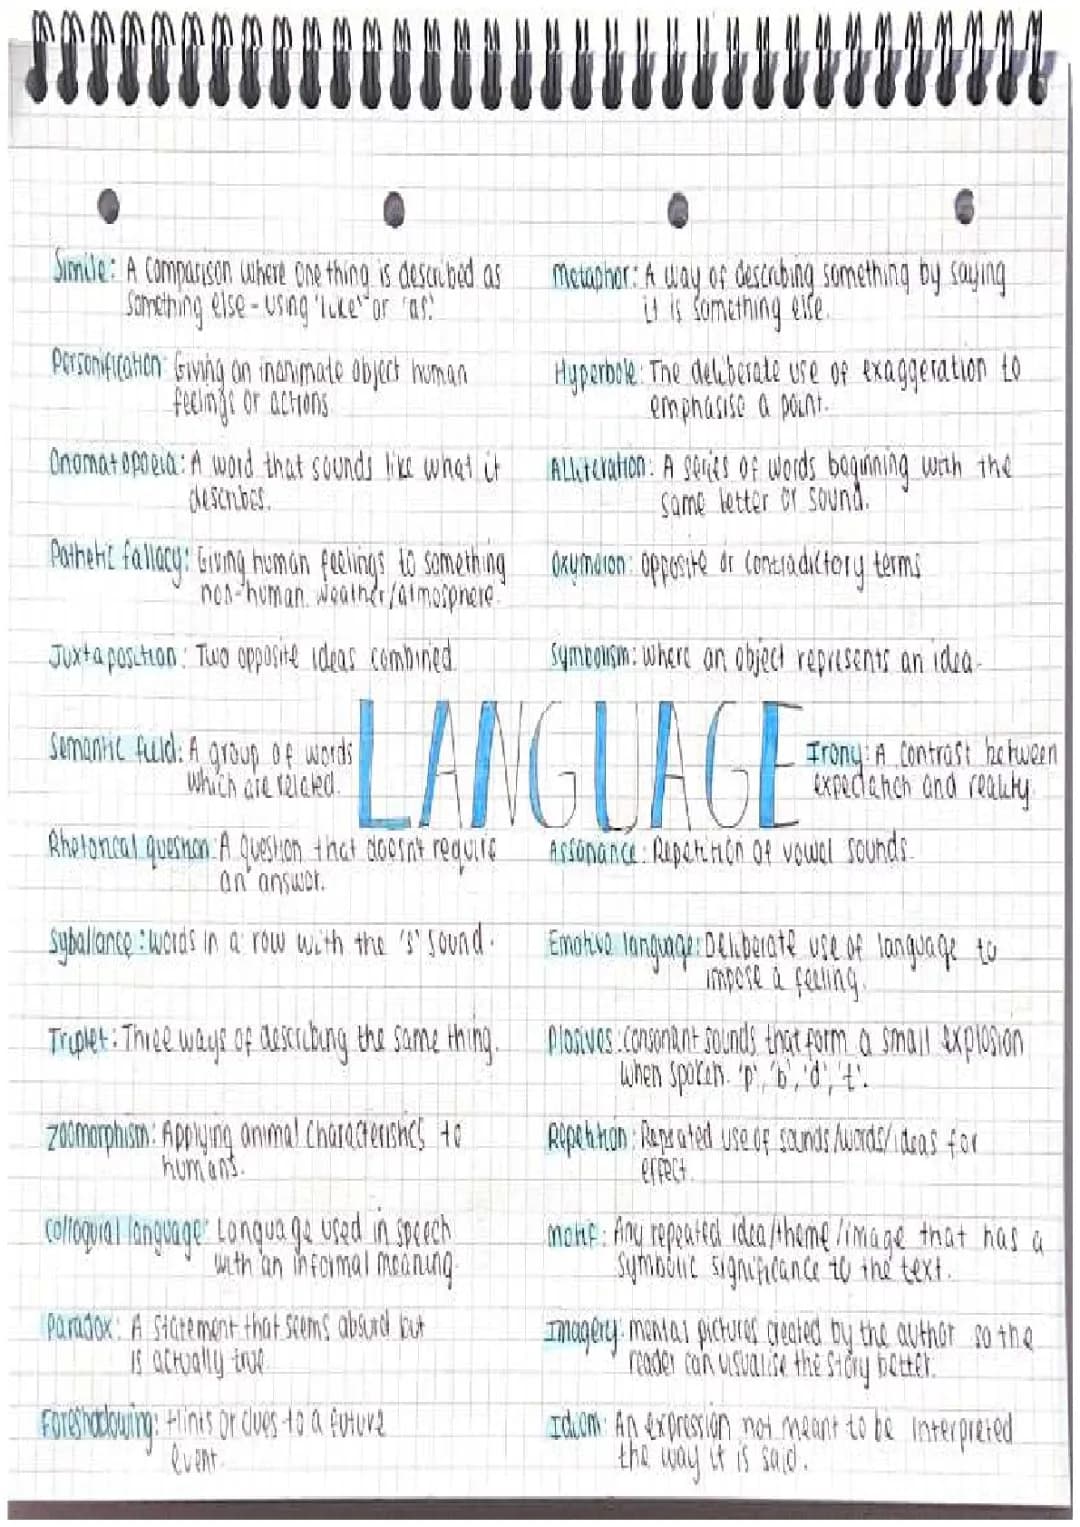 Simile: A comparison where one thing is described as
something else - using 'like' or 'as'.
Metaphor: A way of describing something by saying
it is something else.
Personification: Giving an inanimate object human
feelings or actions
Hyperbole: The deliberate use of exaggeration to
emphasise a point.
Onomatopoeia: A word that sounds like what it
describes.
Alliteration: A series of words beginning with the
same letter or sound.
Pathetic fallacy: Giving human feelings to something
non-human. weather/atmosphere.
Oxymoron: opposite or contradictory terms
Juxtaposition: Two opposite ideas combined.
Symbolism: where an object represents an idea.
LANGUAGE
Semantic field: A group of words
which are related.
Irony: A contrast between
expectation and reality.
Rhetorical question: A question that doesnt require
an answer.
Assonance: Repetition of vowel sounds.
Syballance: words in a row with the 's' sound.
Emotive language: Deliberate use of language to
impose a feeling.
Triplet: Three ways of describing the same thing.
Plosives: consonant sounds that form a small explosion
when spoken. 'p', 'b', 'd', 't'.
Zoomorphism: Applying animal characteristics to
humans.
Repetition: Repeated use of sounds/words/ideas for
effect.
Colloquial language: Language used in speech
with an informal meaning.
Motif: Any repeated idea/theme/image that has a
symbolic significance to the text.
Paradox: A statement that seems absurd but
is actually true.
Imagery: mental pictures created by the author so the
reader can visualise the story better.
Foreshadowing: Hints or clues to a future
event.
Idiom: An expression not meant to be interpreted
the way it is said.